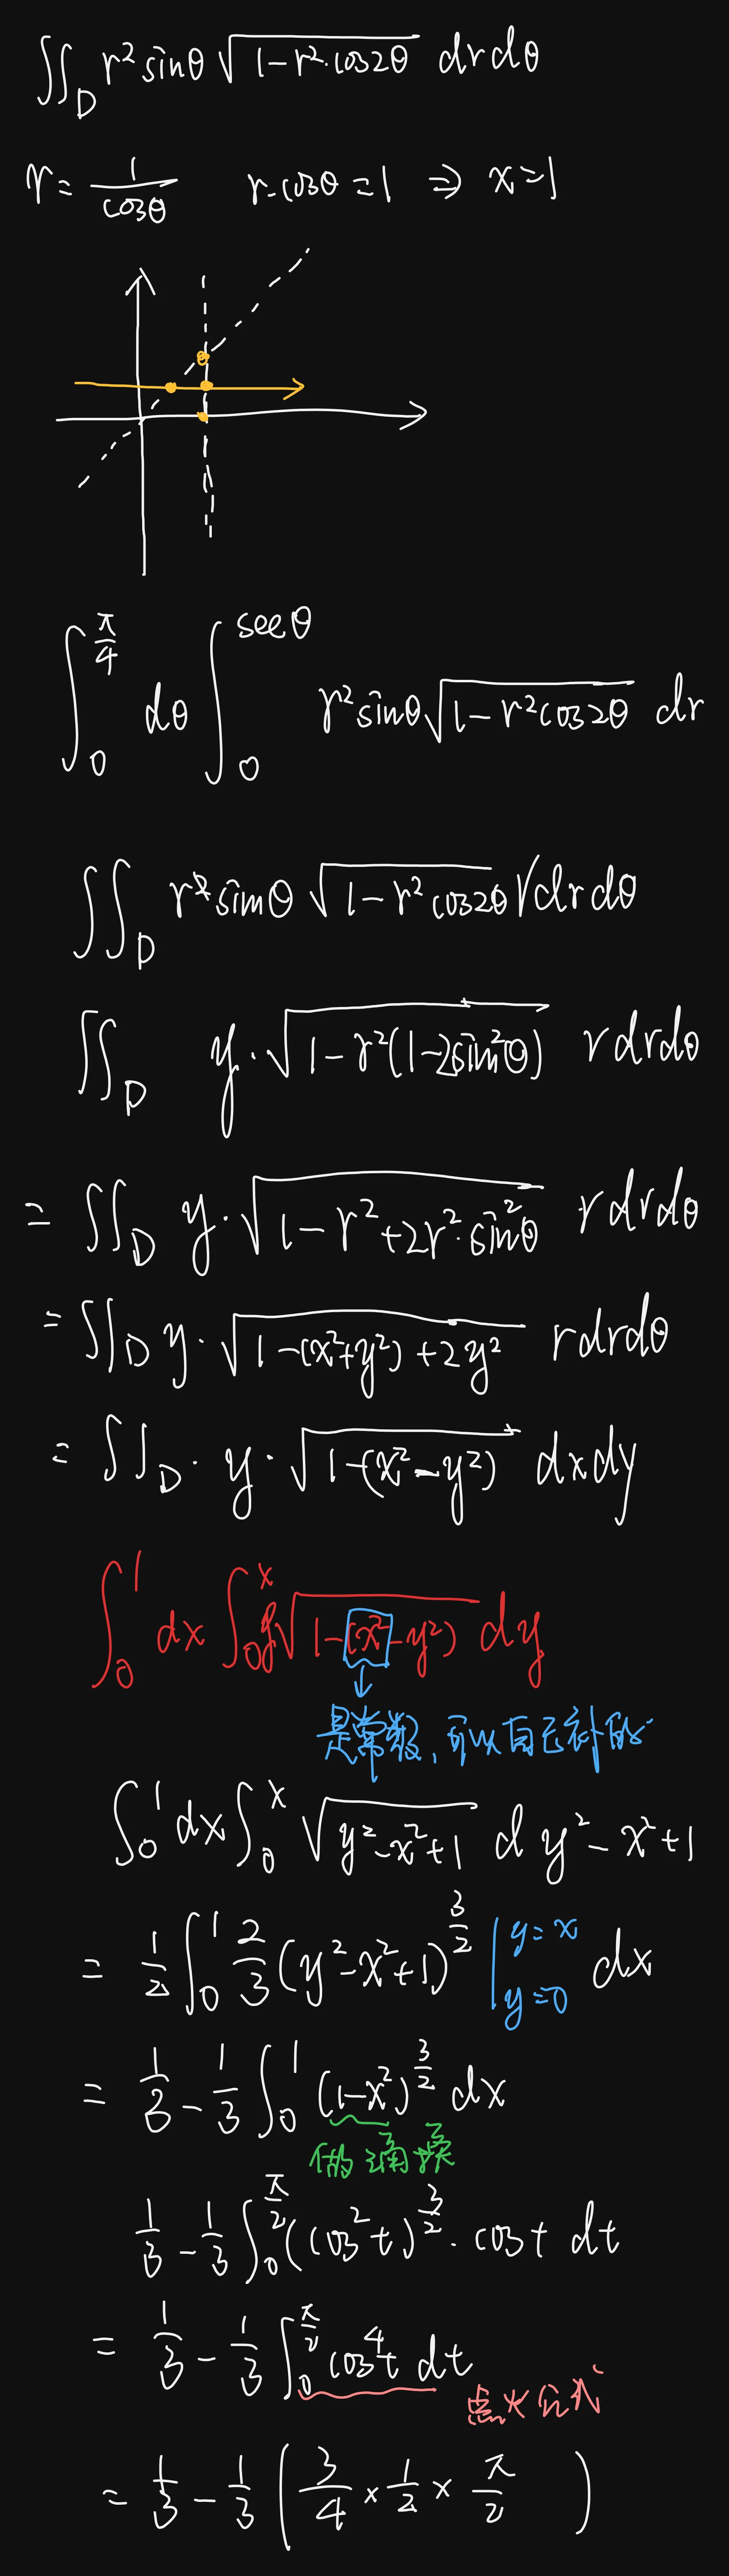 ∬_D r² sinθ √(1-r²·cos2θ) dr dθ
r = 1/cosθ  r·cosθ = 1 ⇒ x=1
∫_0^{π/4} dθ ∫_0^{secθ} r² sinθ √(1-r² cos2θ) dr
∬_D r² sinθ √(1-r² cos2θ) r dr dθ
∬_D y·√(1-r²(1-2sin²θ)) r dr dθ
= ∬_D y·√(1-r²+2r²·sin²θ) r dr dθ
= ∬_D y·√(1-(x²+y²)+2y²) r dr dθ
= ∬_D · y·√(1-(x²-y²)) dx dy
∫_0^1 dx ∫_0^x y√(1-(x²-y²)) dy
是常数,可以自己补的
∫_0^1 dx ∫_0^x √(y²-x²+1) d y²-x²+1
= 1/2 ∫_0^1 2/3 (y²-x²+1)^{3/2} |_{y=0}^{y=x} dx
= 1/3 - 1/3 ∫_0^1 (1-x²)^{3/2} dx
做三角换
1/3 - 1/3 ∫_0^{π/2} (cos²t)^{3/2} · cost dt
= 1/3 - 1/3 ∫_0^{π/2} cos⁴t dt
点火公式
= 1/3 - 1/3 ( 3/4 × 1/2 × π/2 )